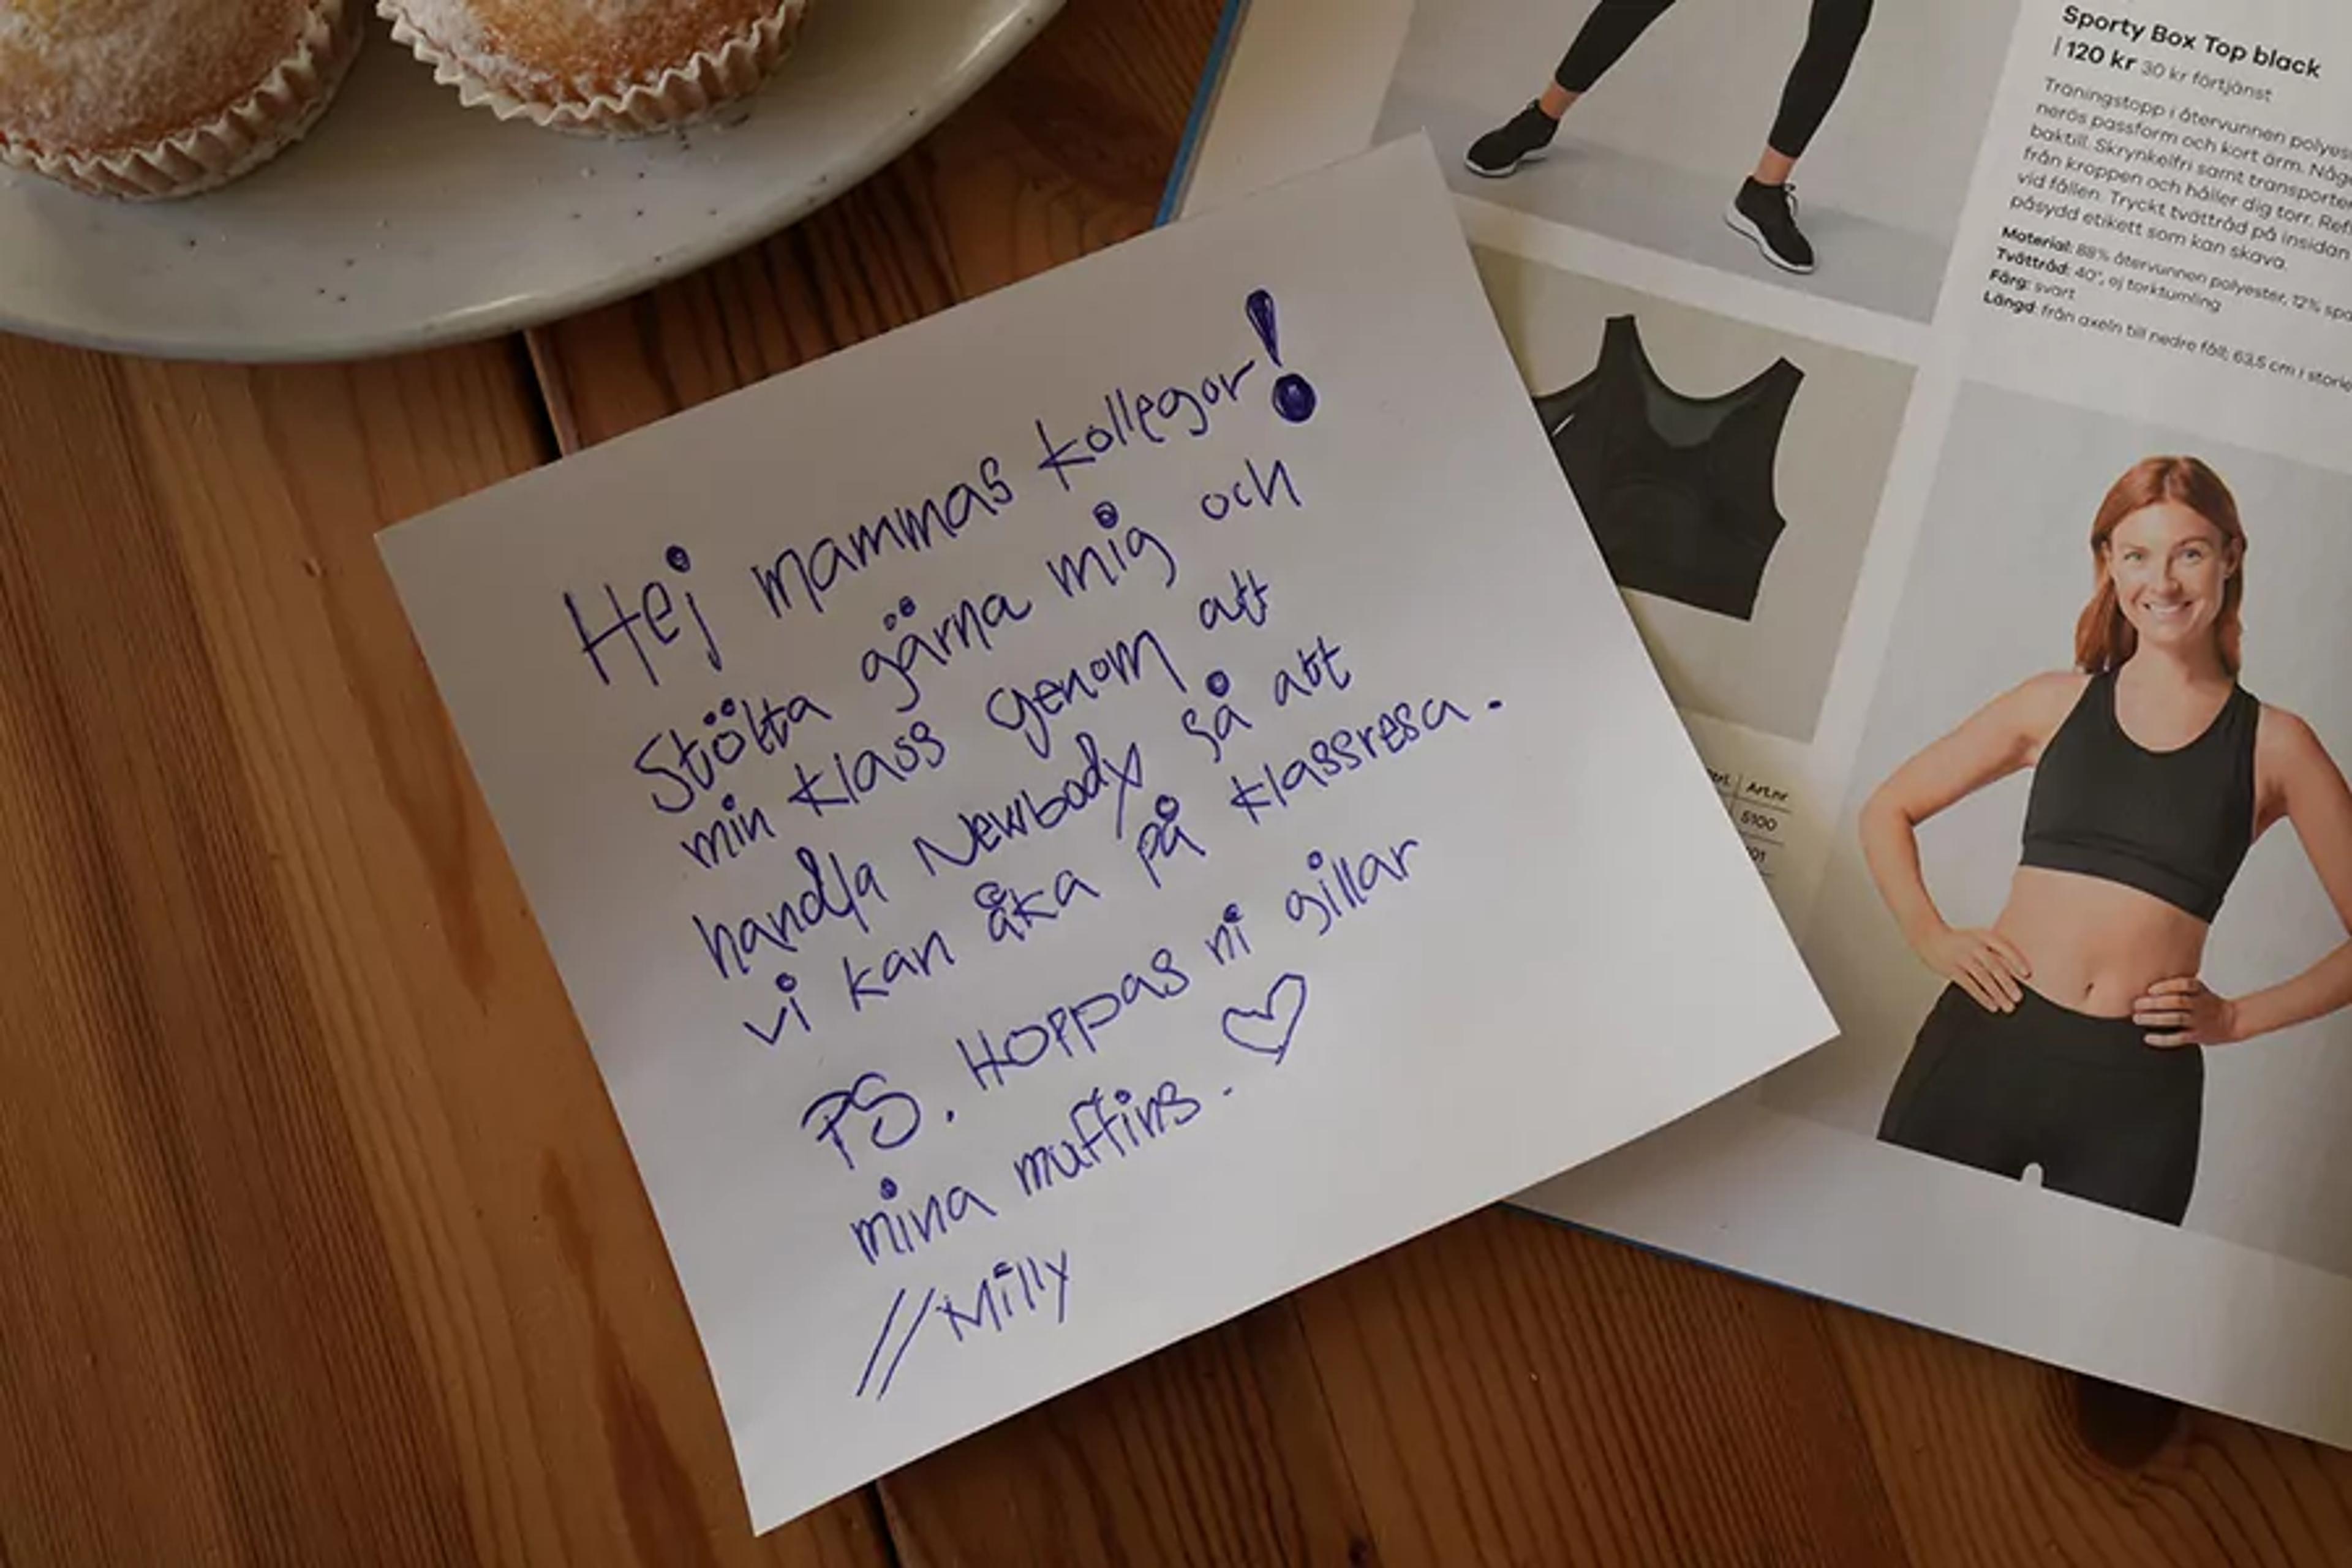 Hej mammas kollegor!
Stötta gärna mig och
min klass genom att
handla Newbody så att
vi kan åka på klassresa.
PS. Hoppas ni gillar
mina muffins. ♡
//Milly
Sporty Box Top black
| 120 kr 30 kr förtjänst
Träningstopp i återvunnen
passform och kort ärm.
baktill. Skrynkelfri samt
från kroppen och håller dig torr.
vid fållen. Tryckt tvättråd på insidan
påsydd etikett som kan skava.
Material: 88% återvunnen polyester, 12%
Tvättråd: 40°, ej torktumling
Färg: svart
Längd: från axeln till nedre fåll; 63,5 cm i
Art.nr
5100